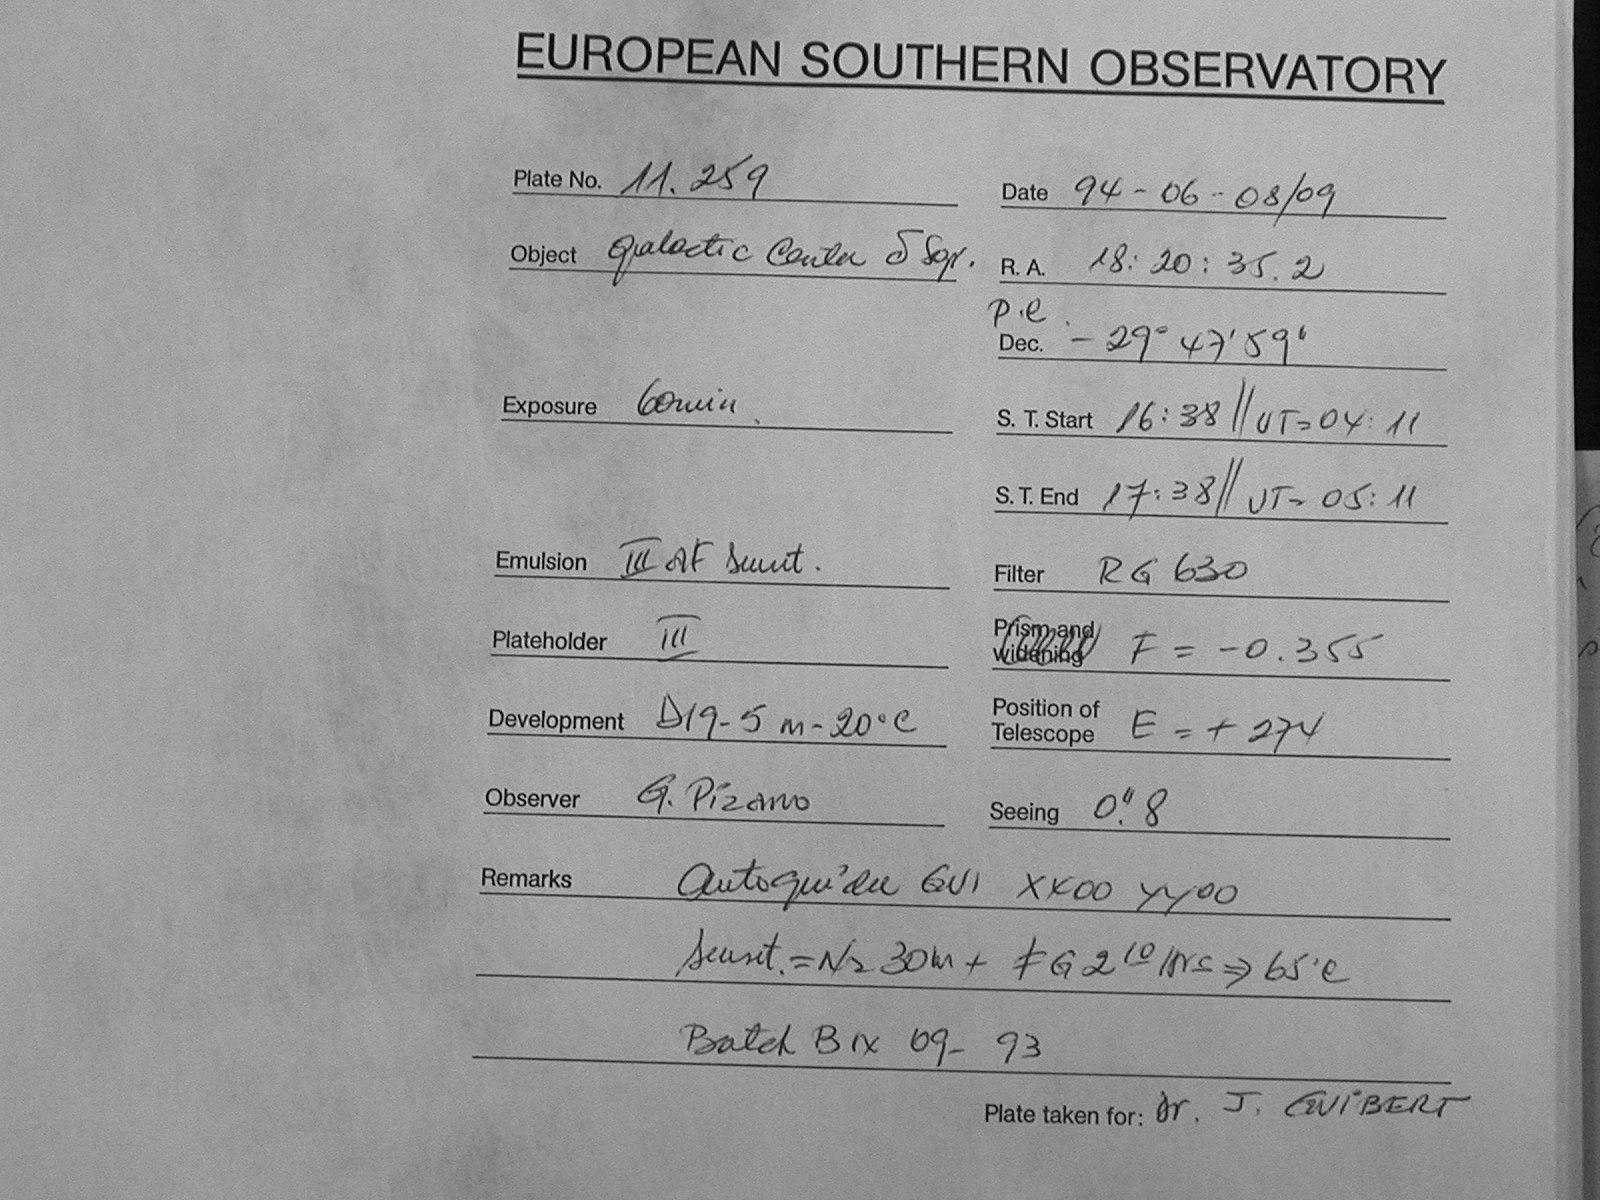 EUROPEAN SOUTHERN OBSERVATORY
Plate No. 11.259
Date 94-06-08/09
Object galactic Center δ Sgr.
R. A. 18:20:35.2
p.e.
Dec. -29° 47' 59"
Exposure 60min.
S. T. Start 16:38 // UT=04:11
S. T. End 17:38 // UT=05:11
Emulsion III aF Sensit.
Filter RG 630
Plateholder III
Prism and widening F = -0.355
Development D19-5 m-20°C
Position of Telescope E = +274
Observer G. Pizarro
Seeing 0".8
Remarks Autoguider GUI XX00 YY00
Sensit. = N2 30m + FG 2 10 Hrs => 65°C
Batch B IX 09-93
Plate taken for: Dr. J. GUIBERT